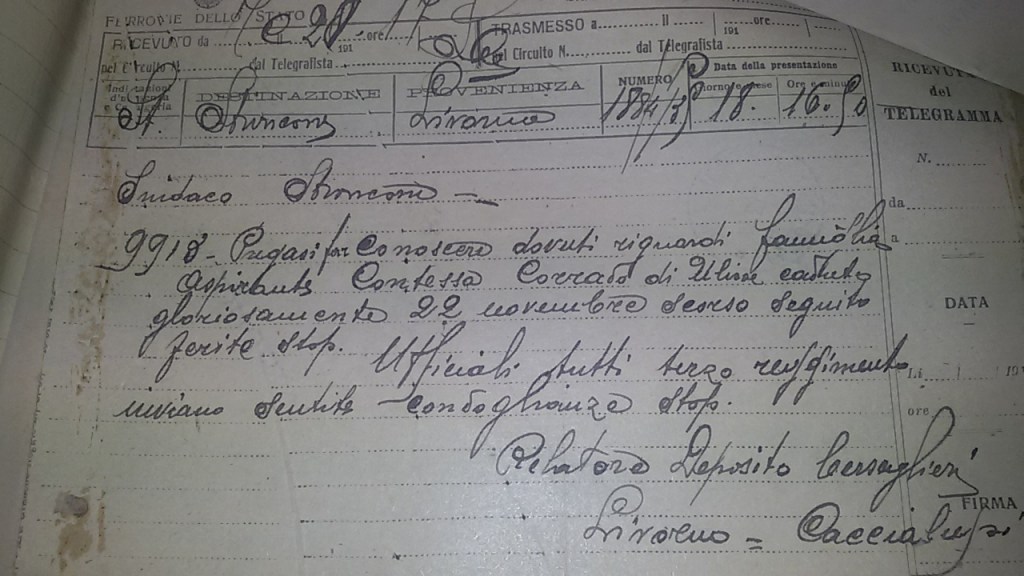 FERROVIE DELLO STATO
RICEVUTO da 20 191 ore 17 TRASMESSO a il 191 ore
nel Circuito N. dal Telegrafista nel Circuito N. dal Telegrafista
DESTINAZIONE PROVENIENZA NUMERO Data della presentazione
Giorno e mese Ore e minuti
St. Stroncone Livorno 1884/35 18. 16.50
Sindaco Stroncone —
9918 - Pregasi far conoscere dovuti riguardi famiglia
aspirante Contessa Corrado di Ulisse caduto
gloriosamente 22 novembre scorso seguito
ferite stop. Ufficiali tutti terzo reggimento
inviano sentite condoglianze stop.
Relatore Deposito Bersaglieri
Livorno =
RICEVUTA
del
TELEGRAMMA
N.
da
a
DATA
Li
ore
FIRMA